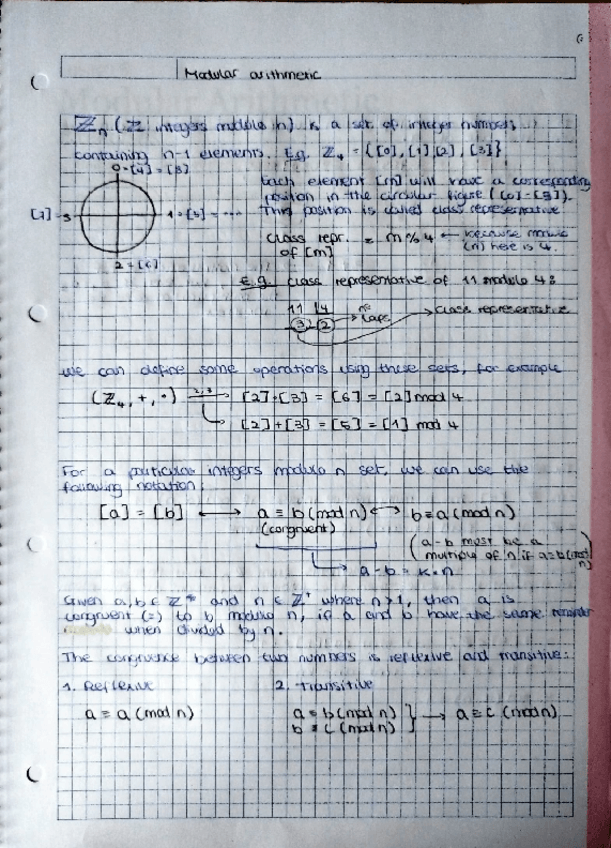 Modular arithmetic
ℤn (ℤ integers modulo n) is a set of integer numbers
containing n-1 elements. E.g. ℤ4 = {[0], [1], [2], [3]}
0 = [4] = [8]
[7] = 3
1 = [5] = ...
2 = [6]
Each element [m] will have a corresponding
position in the circular figure ([0]-[3]).
This position is called class representative
class repr. = m % 4 ← because modulo
of [m] (n) here is 4.
E.g. class representative of 11 modulo 4:
11 4 nº
3 2 → laps → class representative
we can define some operations using these sets, for example
(ℤ4, +, ·) 2,3 → [2]·[3] = [6] = [2] mod 4
→ [2]+[3] = [5] = [1] mod 4
For a particular integers modulo n set, we can use the
following notation:
[a] = [b] ↔ a ≡ b (mod n) ↔ b ≡ a (mod n)
(congruent)
(a-b must be a
multiple of n if a≡b (mod n))
→ a-b = k·n
Given a, b ∈ ℤ* and n ∈ ℤ+ where n>1, then a is
congruent (≡) to b modulo n, if a and b have the same
when divided by n.
The congruence between two numbers is reflexive and transitive:
1. Reflexive 2. Transitive
a ≡ a (mod n)
a ≡ b (mod n)
b ≡ c (mod n) } → a ≡ c (mod n)